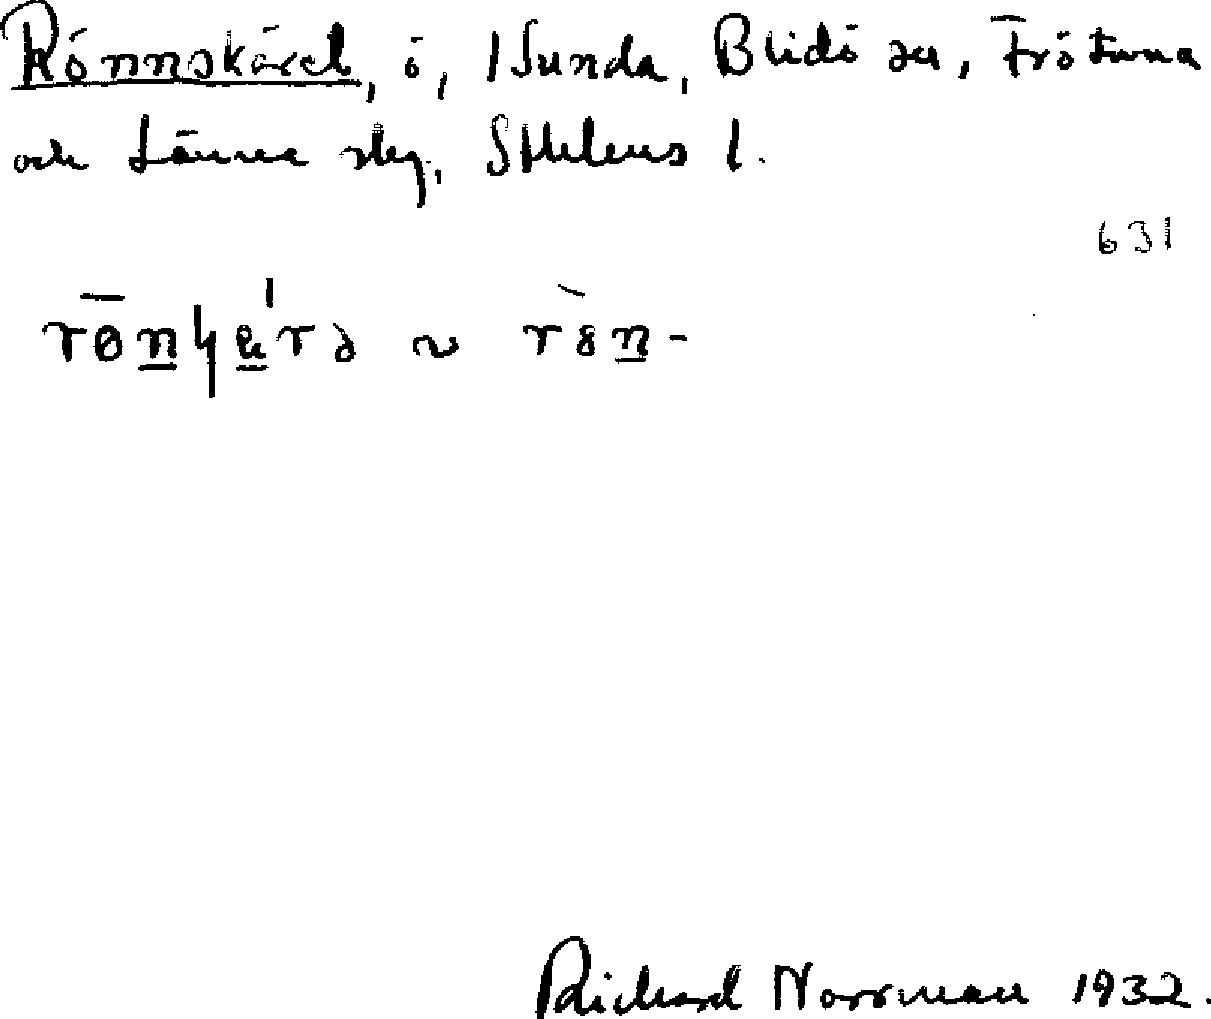 Rönnskäret, ö, Sunda, Blidö sn, Frötuna
och Länna slg, Sthlms l.
631
Richard Norrman 1932.